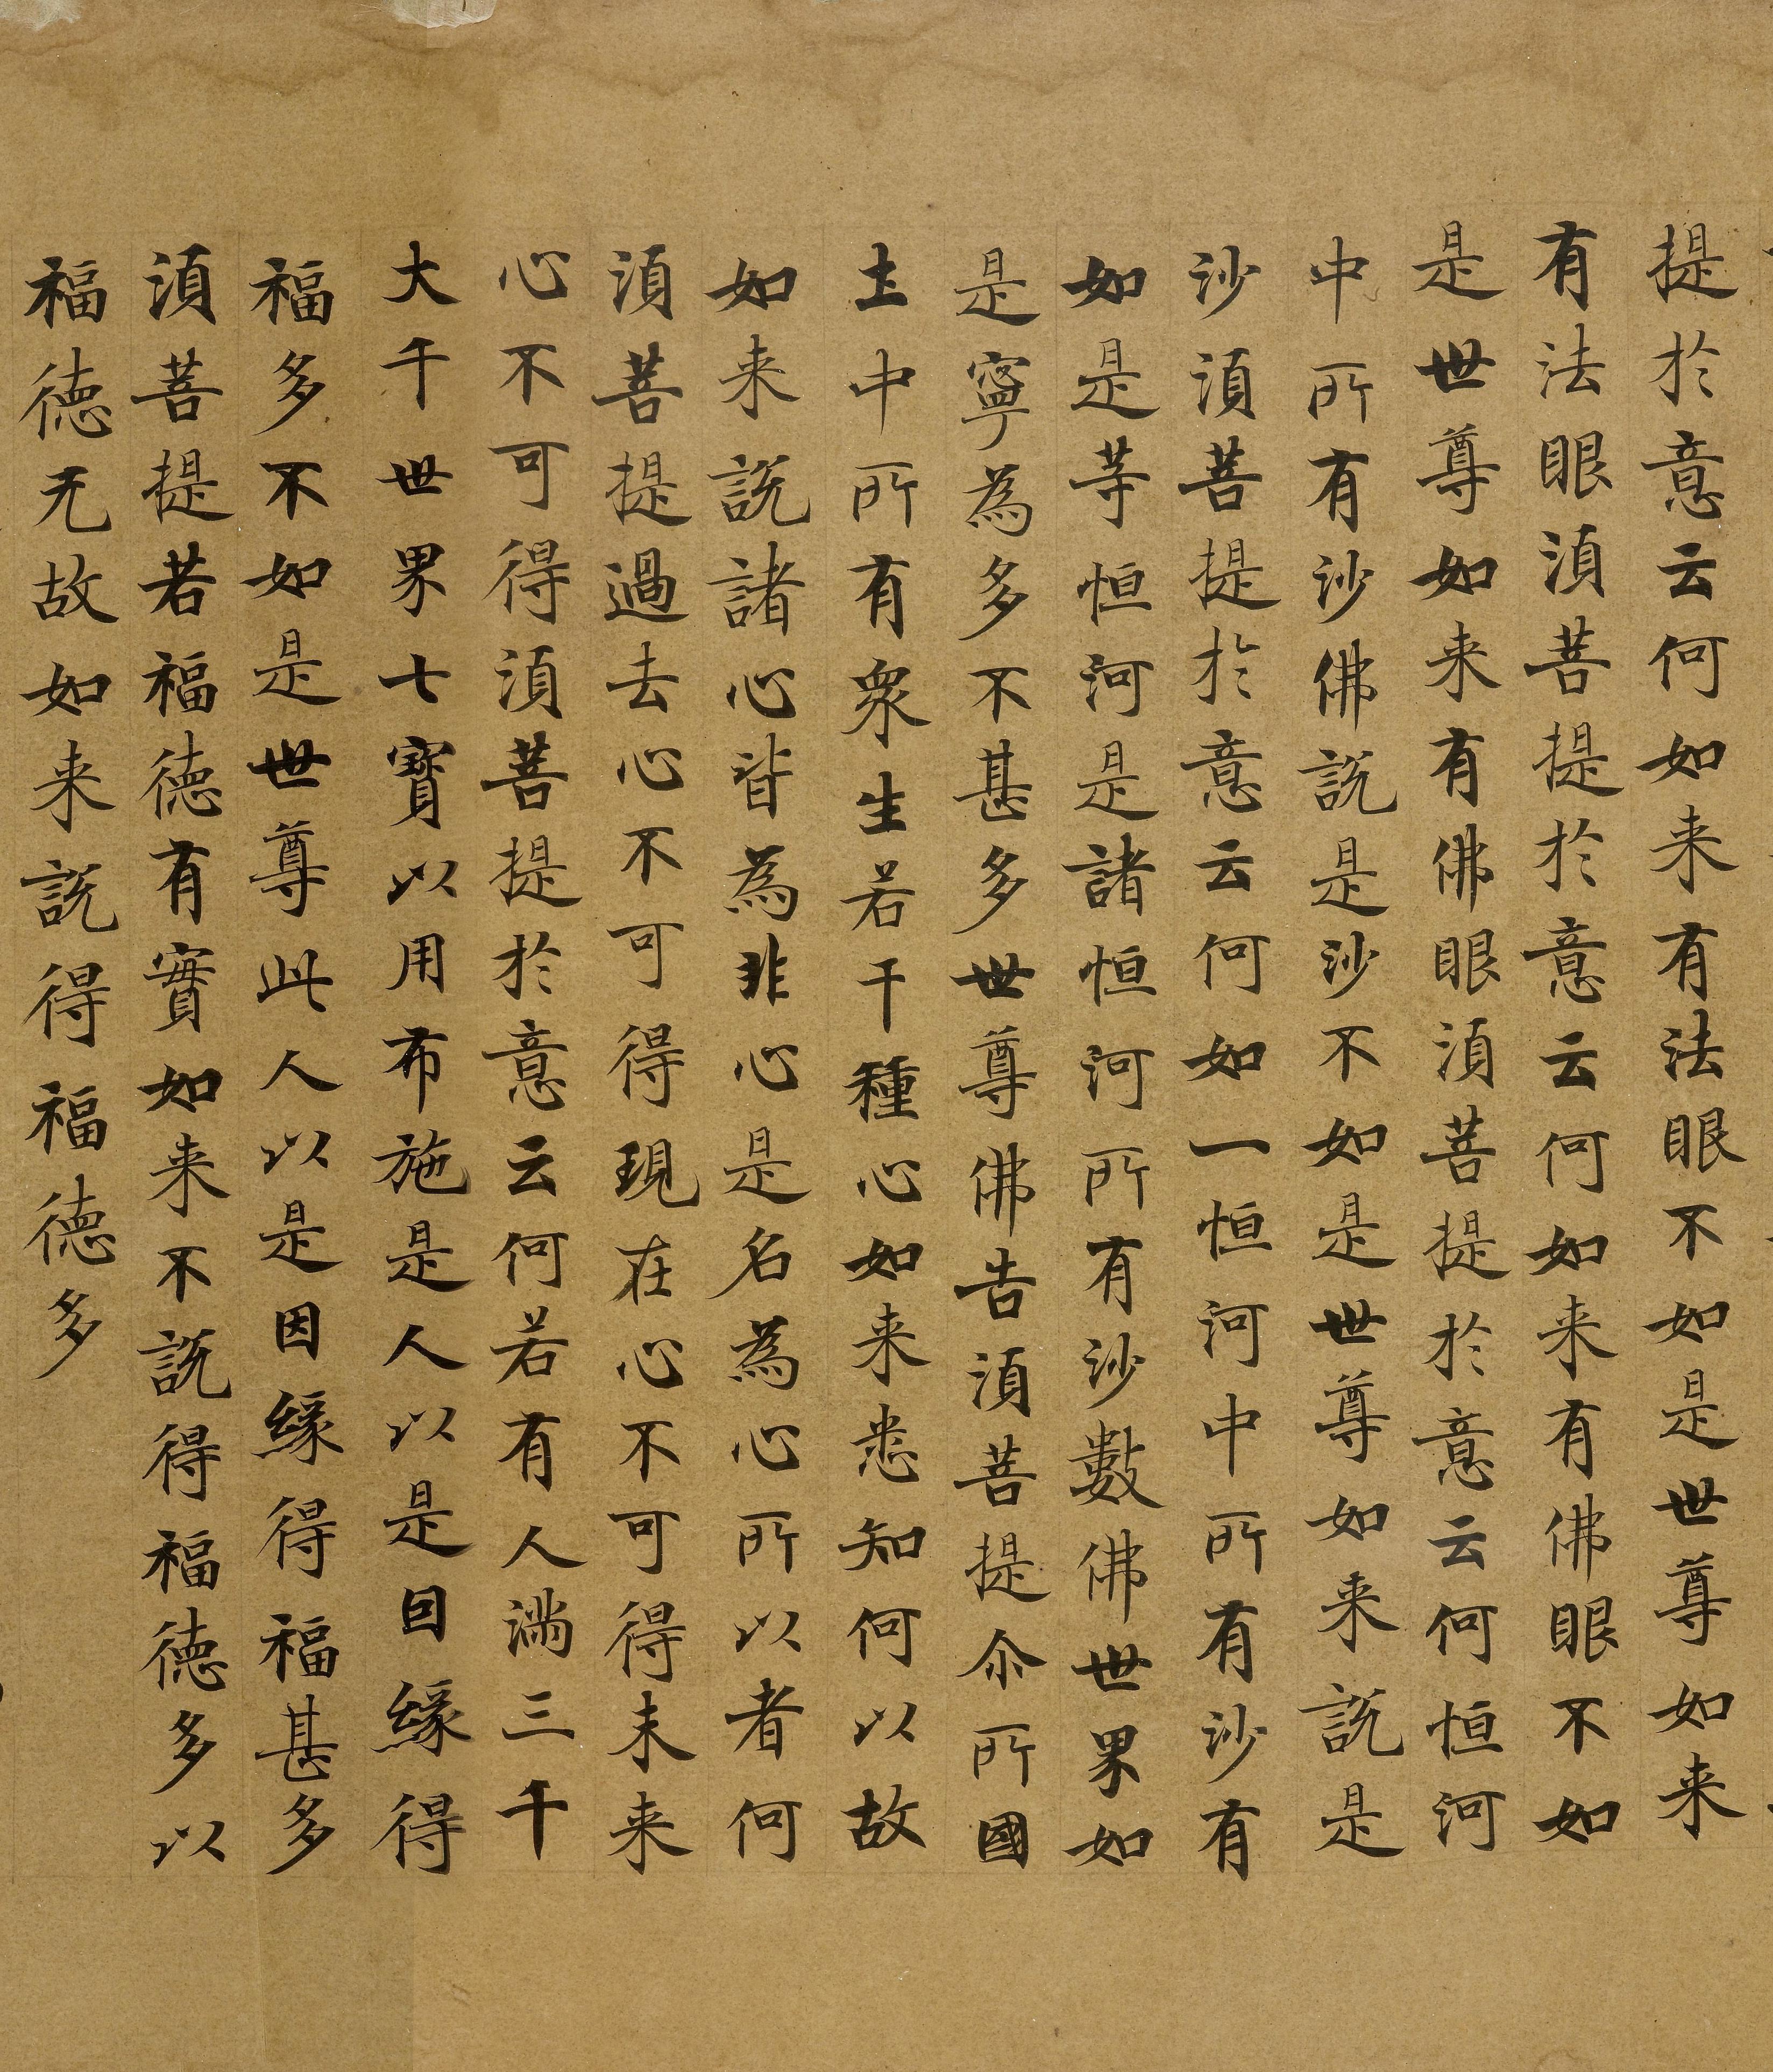 提於意云何如来有法眼不如是世尊如来
有法眼湏菩提於意云何如来有佛眼不如
是世尊如来有佛眼湏菩提於意云何恒河
中所有沙佛說是沙不如是世尊如来說是
沙湏菩提於意云何如一恒河中所有沙有
如是等恒河是諸恒河所有沙數佛世界如
是寧為多不甚多世尊佛告湏菩提尒所國
土中所有衆生若干種心如来悉知何以故
如来說諸心皆為非心是名為心所以者何
湏菩提過去心不可得現在心不可得未来
心不可得湏菩提於意云何若有人滿三千
大千世界七寶以用布施是人以是因緣得
福多不如是世尊此人以是因緣得福甚多
湏菩提若福德有實如来不說得福德多以
福德无故如来說得福德多